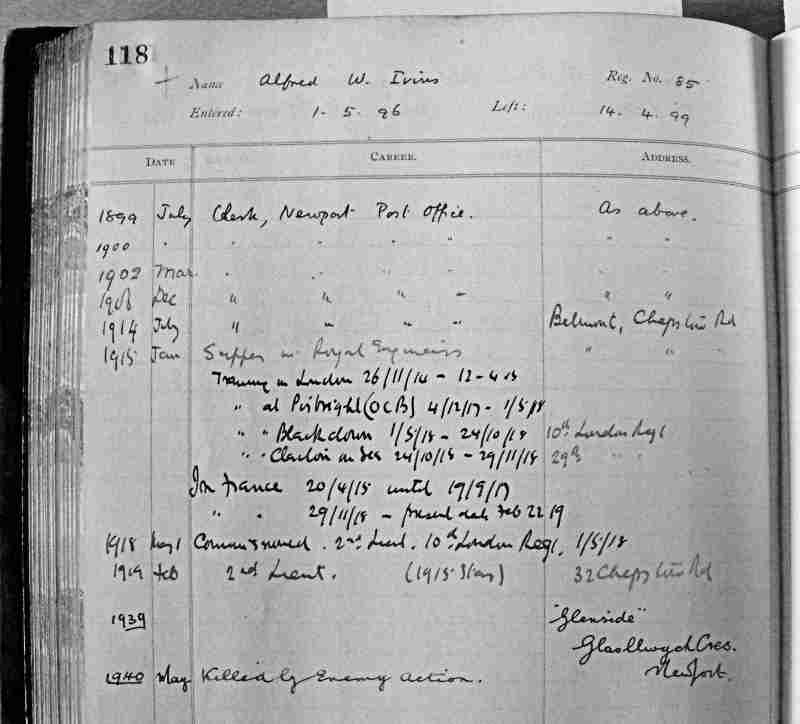 118
Name Alfred W. Ivins Reg. No. 85
Entered: 1. 5. 96 Left: 14. 4. 99
DATE CAREER. ADDRESS.
1899 July Clerk, Newport Post Office. As above.
1900 " " " " " " "
1902 Mar. " " " " " "
1908 Dec " " " " " "
1914 July " " " " Belmont, Chepstow Rd
1915 Jan Sapper in Royal Engineers " " "
Training in London 26/11/14 - 12-4-15
" at Pirbright (OCB) 4/12/17 - 1/5/18
" " Blackdown 1/5/18 - 24/10/18 10th London Regt
" " Clacton on Sea 24/10/18 - 29/11/18 29th " "
In France 20/4/15 until 19/9/17
" " 29/11/18 - present date Feb 22 19
1918 May 1 Commissioned. 2nd Lieut. 10th London Regt, 1/5/18
1919 Feb 2nd Lieut. (1915 Star) 32 Chepstow Rd
1939 "Glenside"
Glasllwch Cres.
Newport.
1940 May Killed by Enemy Action.